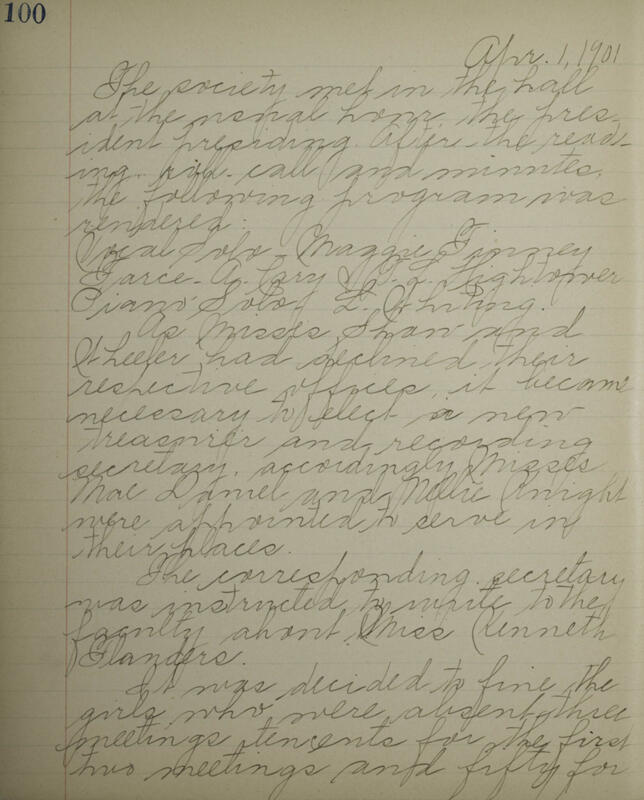 100
Apr. 1, 1901
The society met in the hall
at the usual hour, the pres-
ident presiding. After the read-
ing, roll-call and minutes,
the following program was
rendered:
Vocal Solo - Maggie Finney
Farce - A. Cory & L. Hightower
Piano Solo - L. Whiting.
As Misses Shaw and
Wheeler had declined their
respective offices, it became
necessary to elect a new
treasurer and recording
secretary, accordingly Misses
Mae Daniel and Nellie Knight
were appointed to serve in
their places.
The corresponding secretary
was instructed to write to the
faculty about Miss Kenneth
Flanders.
It was decided to fine the
girls who were absent three
meetings ten cents for the first
two meetings and fifty for